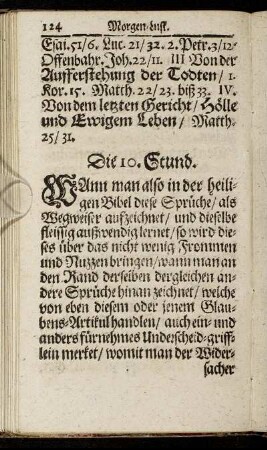 124 Morgen-luſt.
Eſai. 51/6. Luc. 21/32. 2. Petr. 3/12.
Offenbahr. Joh. 22/11. III Von der
Aufferſtehung der Todten/ 1.
Kor. 15. Matth. 22/23. biß 33. IV.
Von dem letzten Gericht/ Hölle
und Ewigem Leben/ Matth.
25/31.
Die 10. Stund.
WAnn man alſo in der heili-
gen Bibel dieſe Sprüche/ als
Wegweiſer aufzeichnet/ und dieſelbe
fleiſſig außwendig lernet/ ſo wird die-
ſes über das nicht wenig Frommen
und Nuzzen bringen/ wann man an
den Rand derſelben dergleichen an-
dere Sprüche hinan zeichnet/ welche
von eben dieſem oder jenem Glau-
bens-Artikul handlen/ auch ein- und
anders fürnehmes Underſcheid-griff-
lein merket/ womit man der Wider-
ſacher